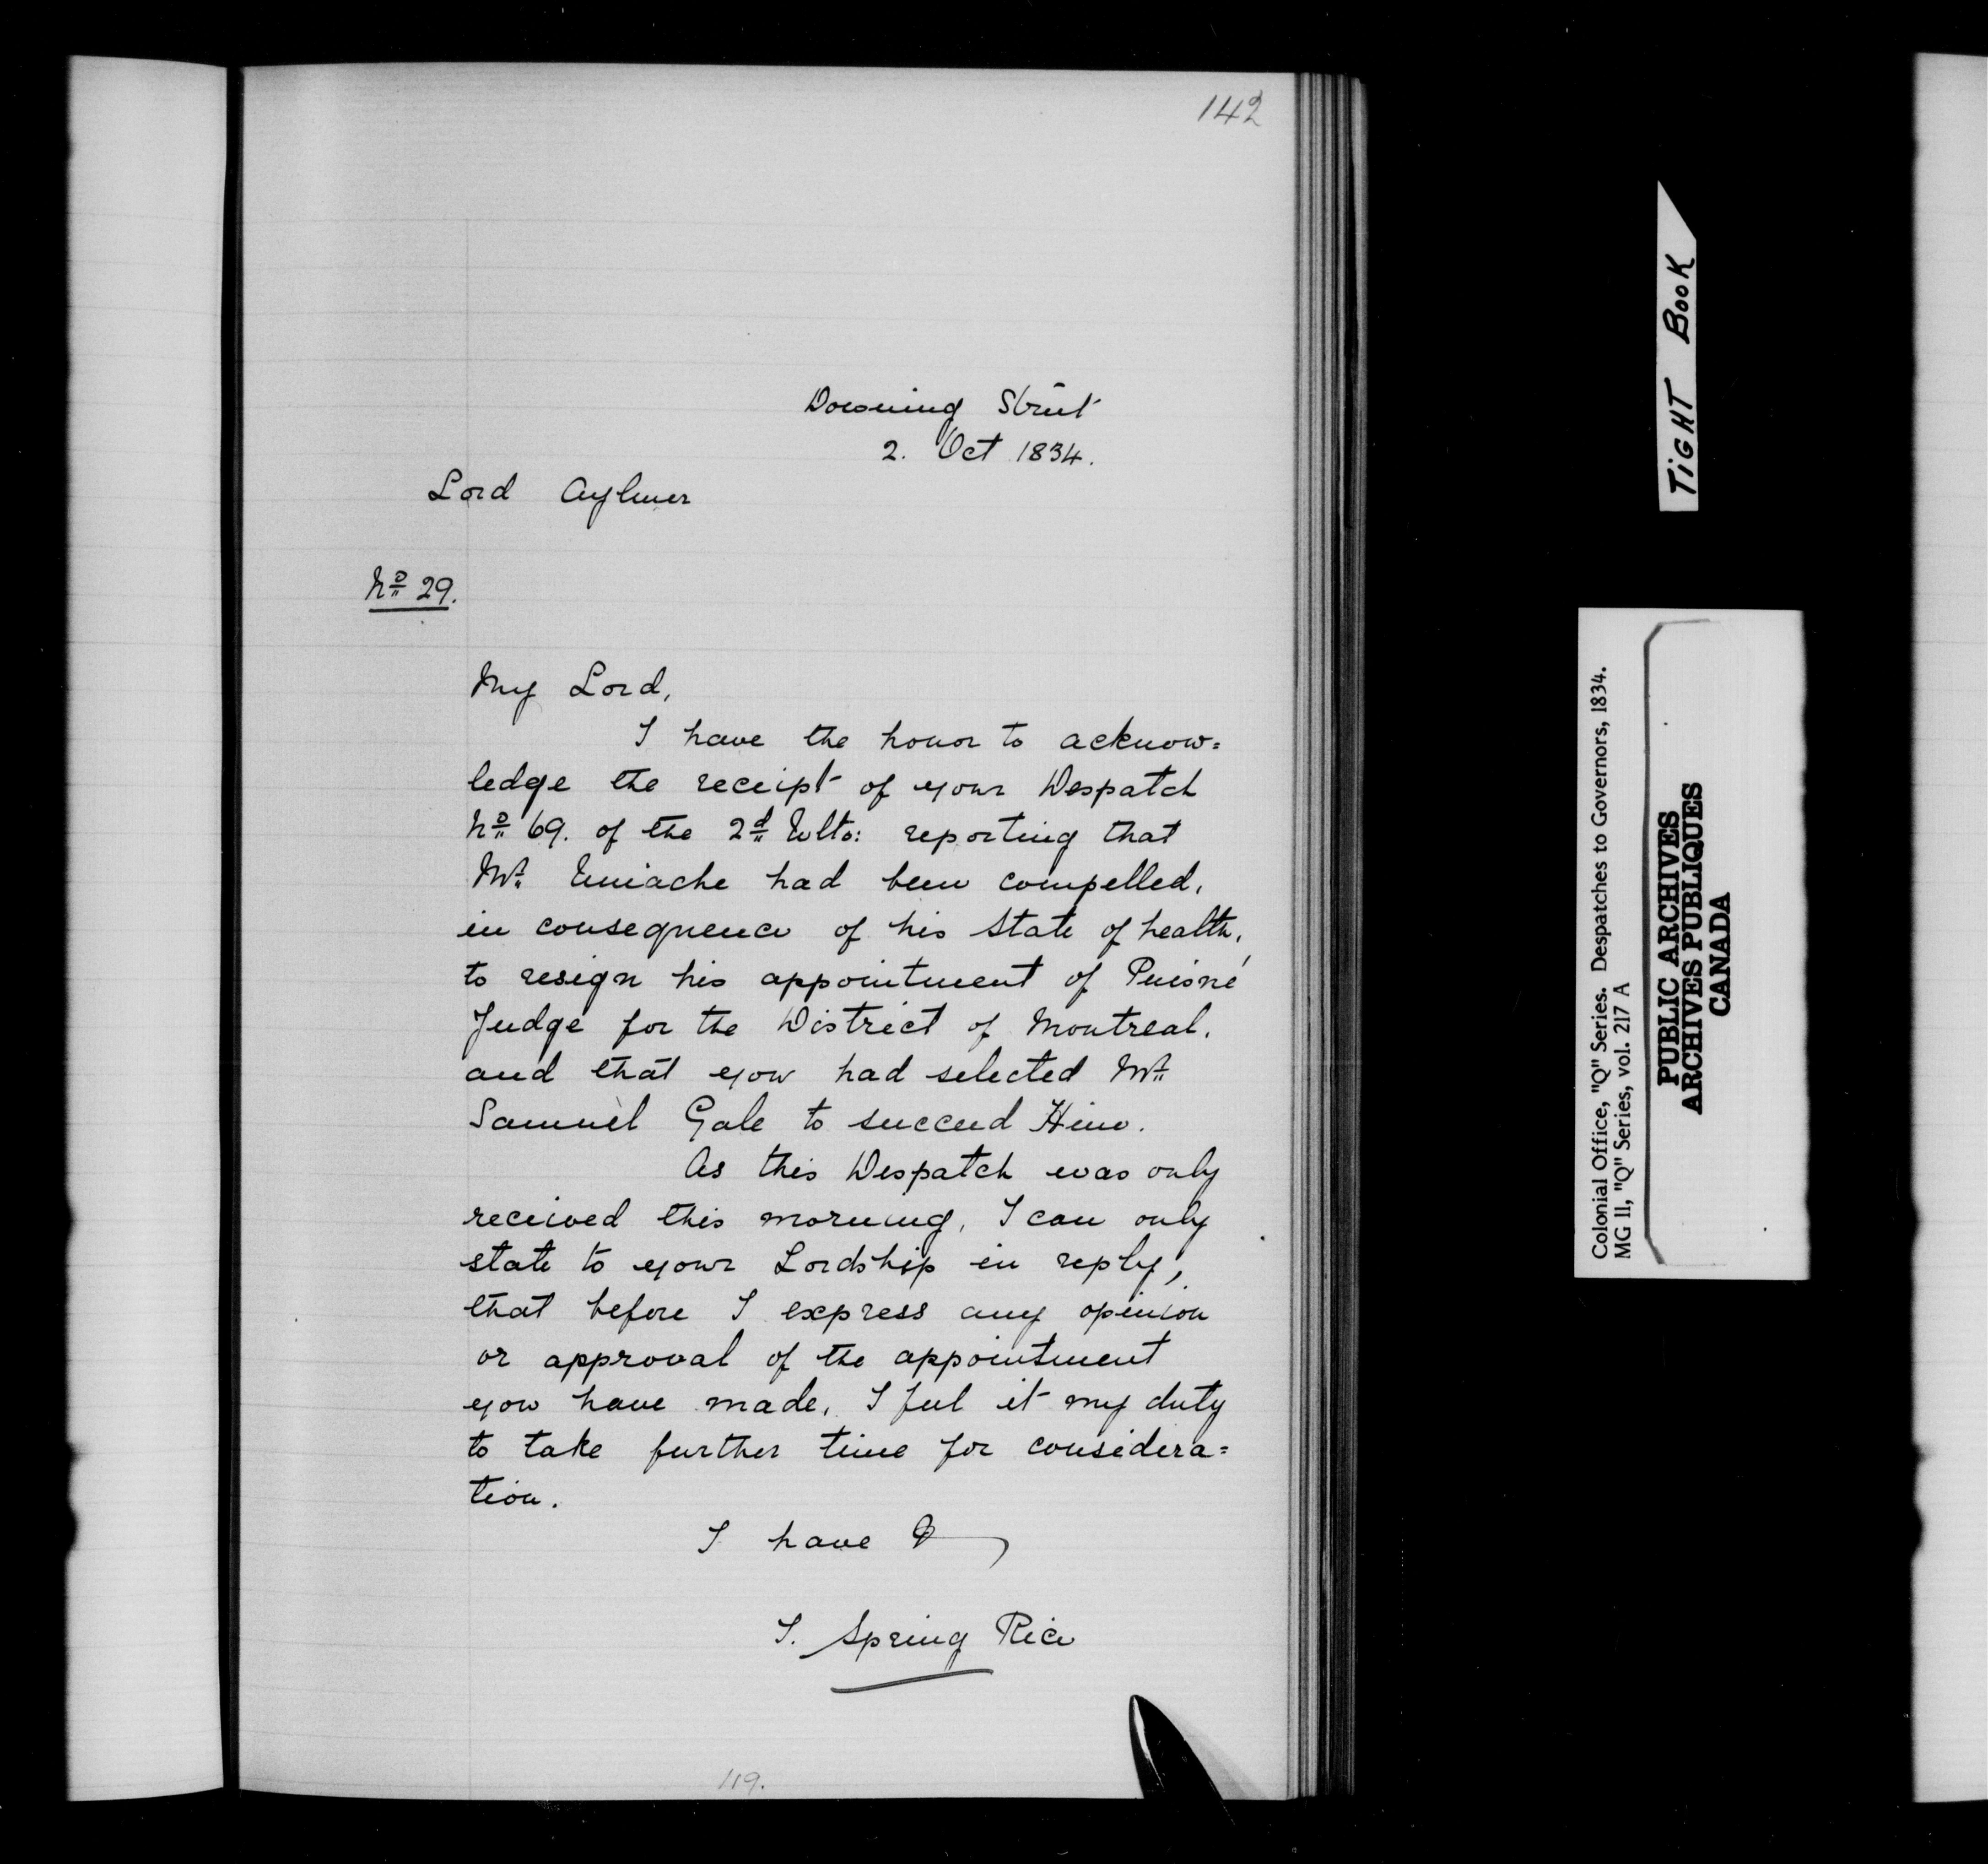 142
Downing Street
2. Oct 1834.
Lord Aylmer
No 29.
My Lord,
I have the honor to acknow=
ledge the receipt of your Despatch
No 69. of the 2d Ulto: reporting that
Mr. Uniacke had been compelled,
in consequence of his state of health,
to resign his appointment of Puisné
Judge for the District of Montreal,
and that you had selected Mr
Samuel Gale to succeed Him.
As this Despatch was only
received this morning, I can only
state to your Lordship in reply,
that before I express any opinion
or approval of the appointment
you have made, I feel it my duty
to take further time for considera=
tion.
I have &
T. Spring Rice
119.
TIGHT BOOK
Colonial Office, "Q" Series. Despatches to Governors, 1834.
MG 11, "Q" Series, vol. 217 A
PUBLIC ARCHIVES
ARCHIVES PUBLIQUES
CANADA